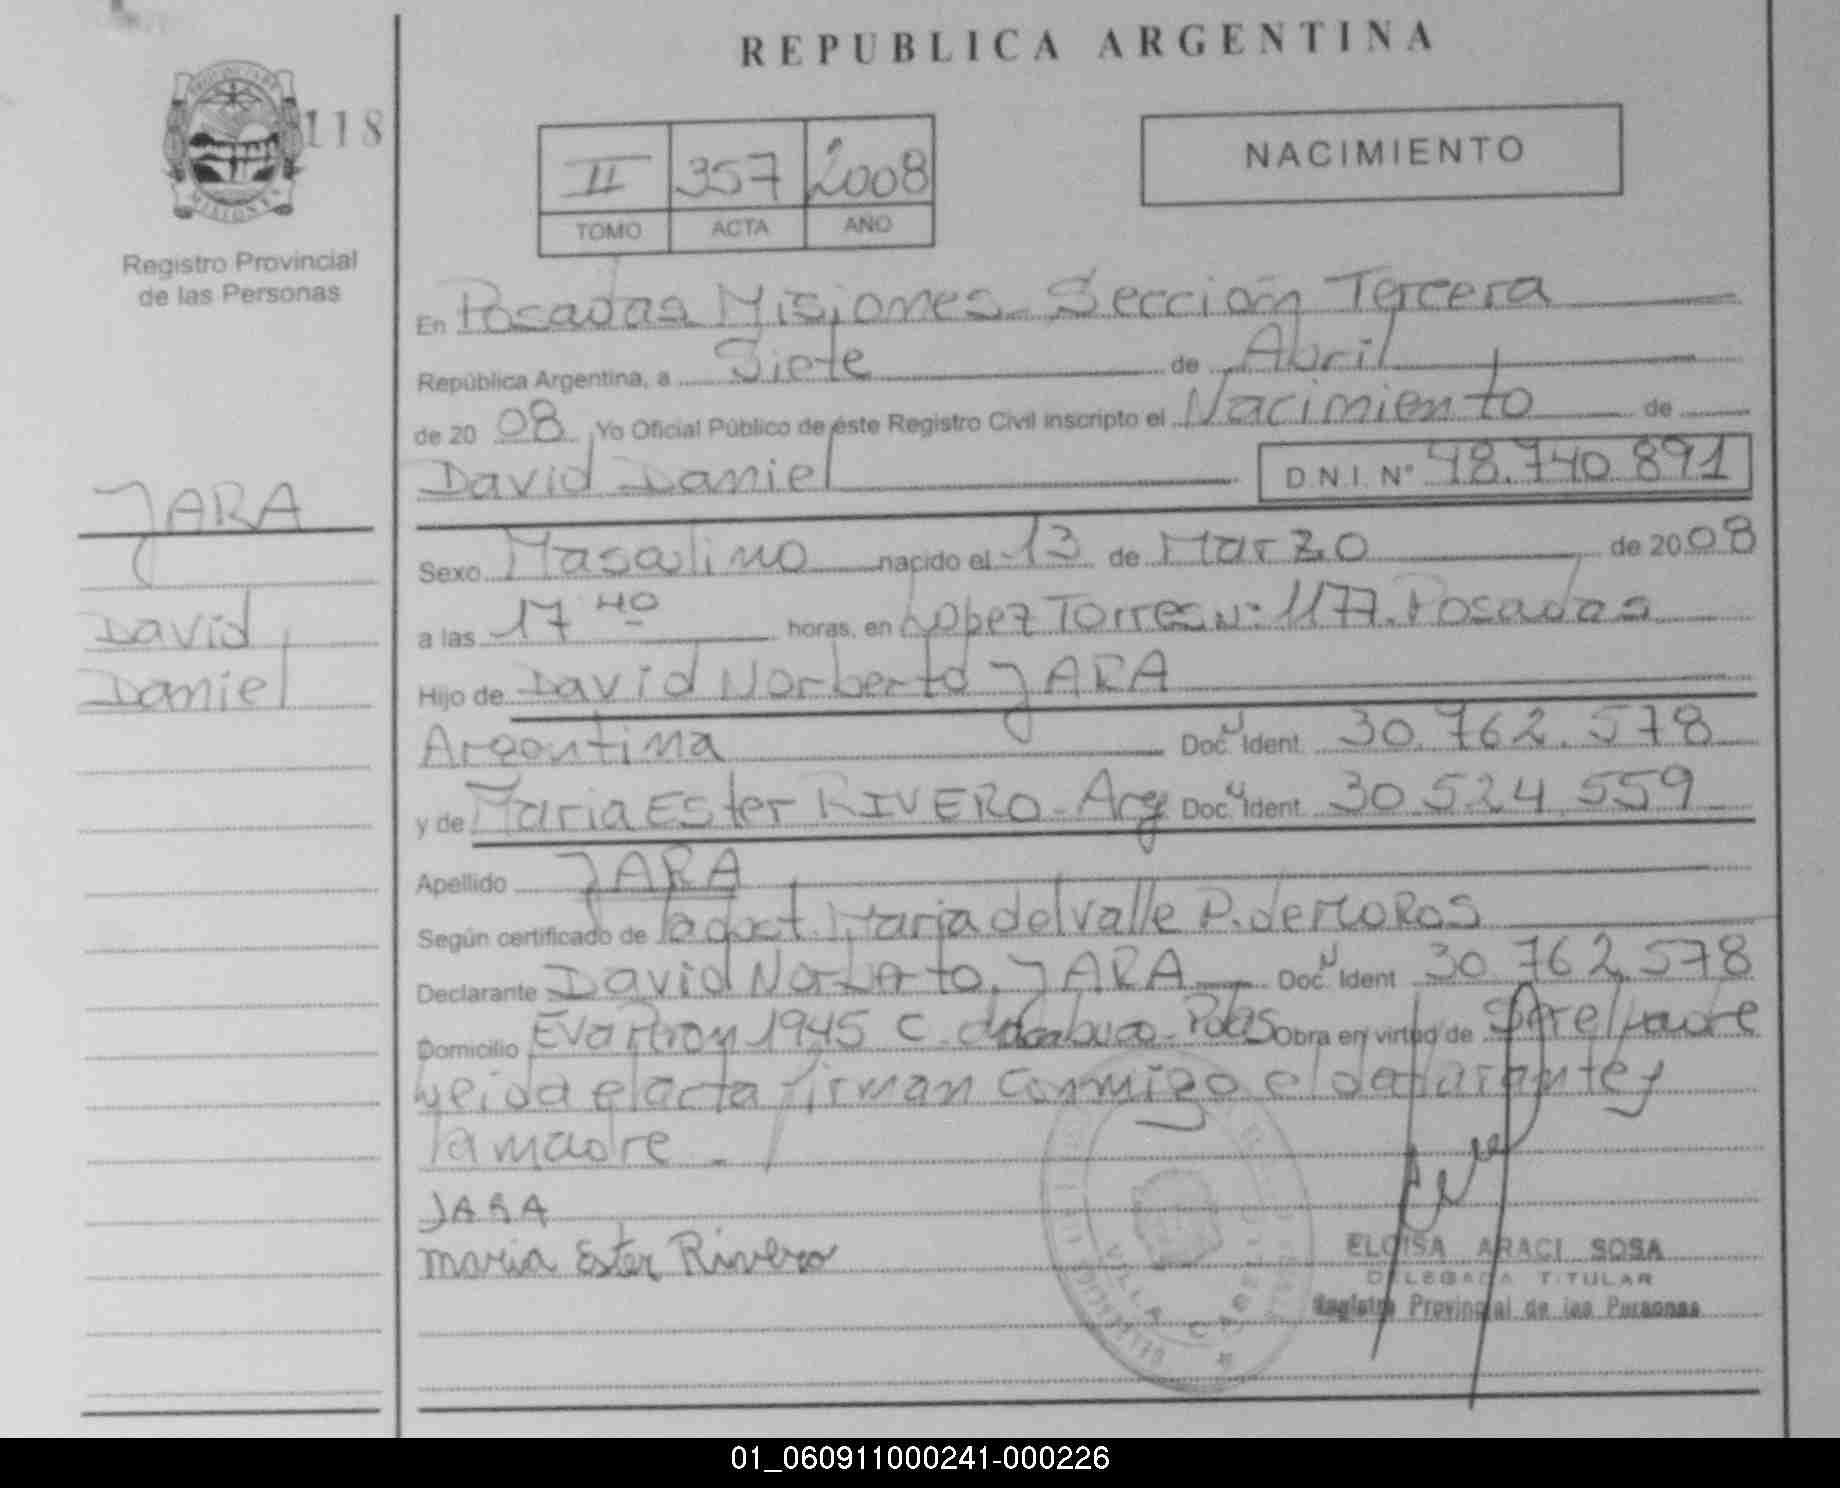 REPUBLICA ARGENTINA
118
NACIMIENTO
II 357 2008
TOMO ACTA AÑO
Registro Provincial
de las Personas
En Posadas Misiones - Sección Tercera
República Argentina, a Siete de Abril
de 2008 Yo Oficial Público de éste Registro Civil inscripto el Nacimiento de
David Daniel D.N.I. Nº 48.740.891
JARA
David
Daniel
Sexo Masculino nacido el 13 de Marzo de 2008
a las 17 40 horas, en Lopez Torres Nº 1177. Posadas
Hijo de David Norberto JARA
Argentina Doc. Ident. 30.762.578
y de Maria Ester RIVERO - Arg Doc. Ident. 30 524 559
Apellido JARA
Según certificado de la doct. Maria del Valle P. de MOROS
Declarante David Norberto JARA Doc. Ident 30 762.578
Domicilio Eva Peron 1945 C. Pdas Obra en virtud de
Leida el acta firman conmigo el declarante y
la madre -
JARA
maria Ester Rivero
VILLA CABELLO
ELOISA ARACI SOSA
DELEGADA TITULAR
Registro Provincial de las Personas
01_060911000241-000226